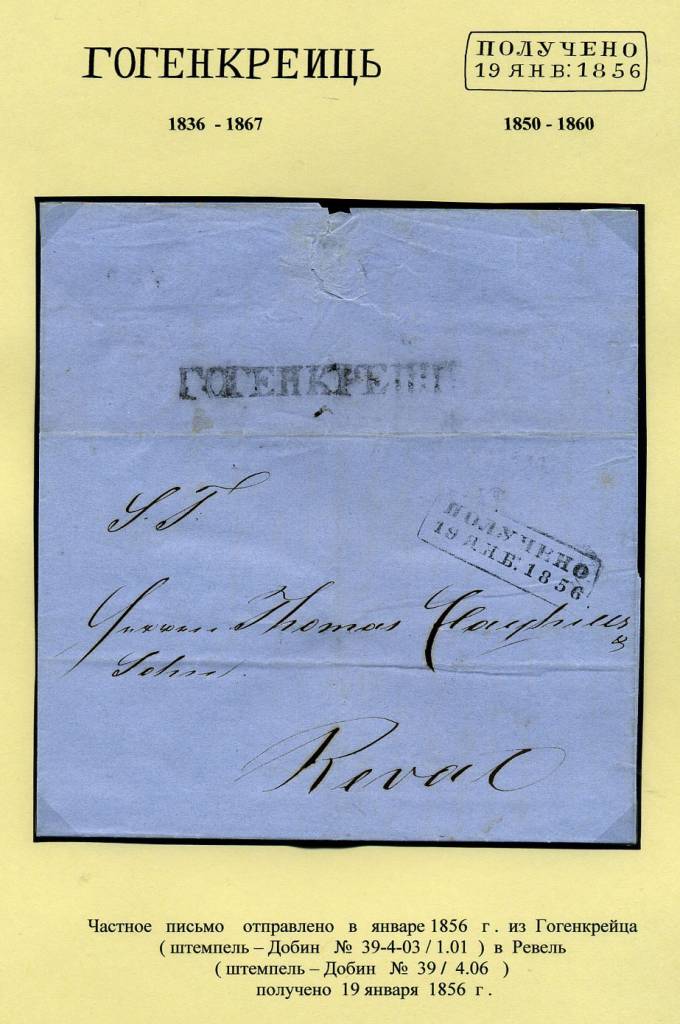 ГОГЕНКРЕИЦЬ
ПОЛУЧЕНО
19 ЯНВ: 1856
1836 - 1867
1850 - 1860
ГОГЕНКРЕИЦ
S. T.
ПОЛУЧЕНО
19 ЯНВ: 1856
Herren Thomas Clayhills &
Sohn.
Reval
Частное письмо отправлено в январе 1856 г. из Гогенкрейца
( штемпель – Добин № 39-4-03 / 1.01 ) в Ревель
( штемпель – Добин № 39 / 4.06 )
получено 19 января 1856 г.